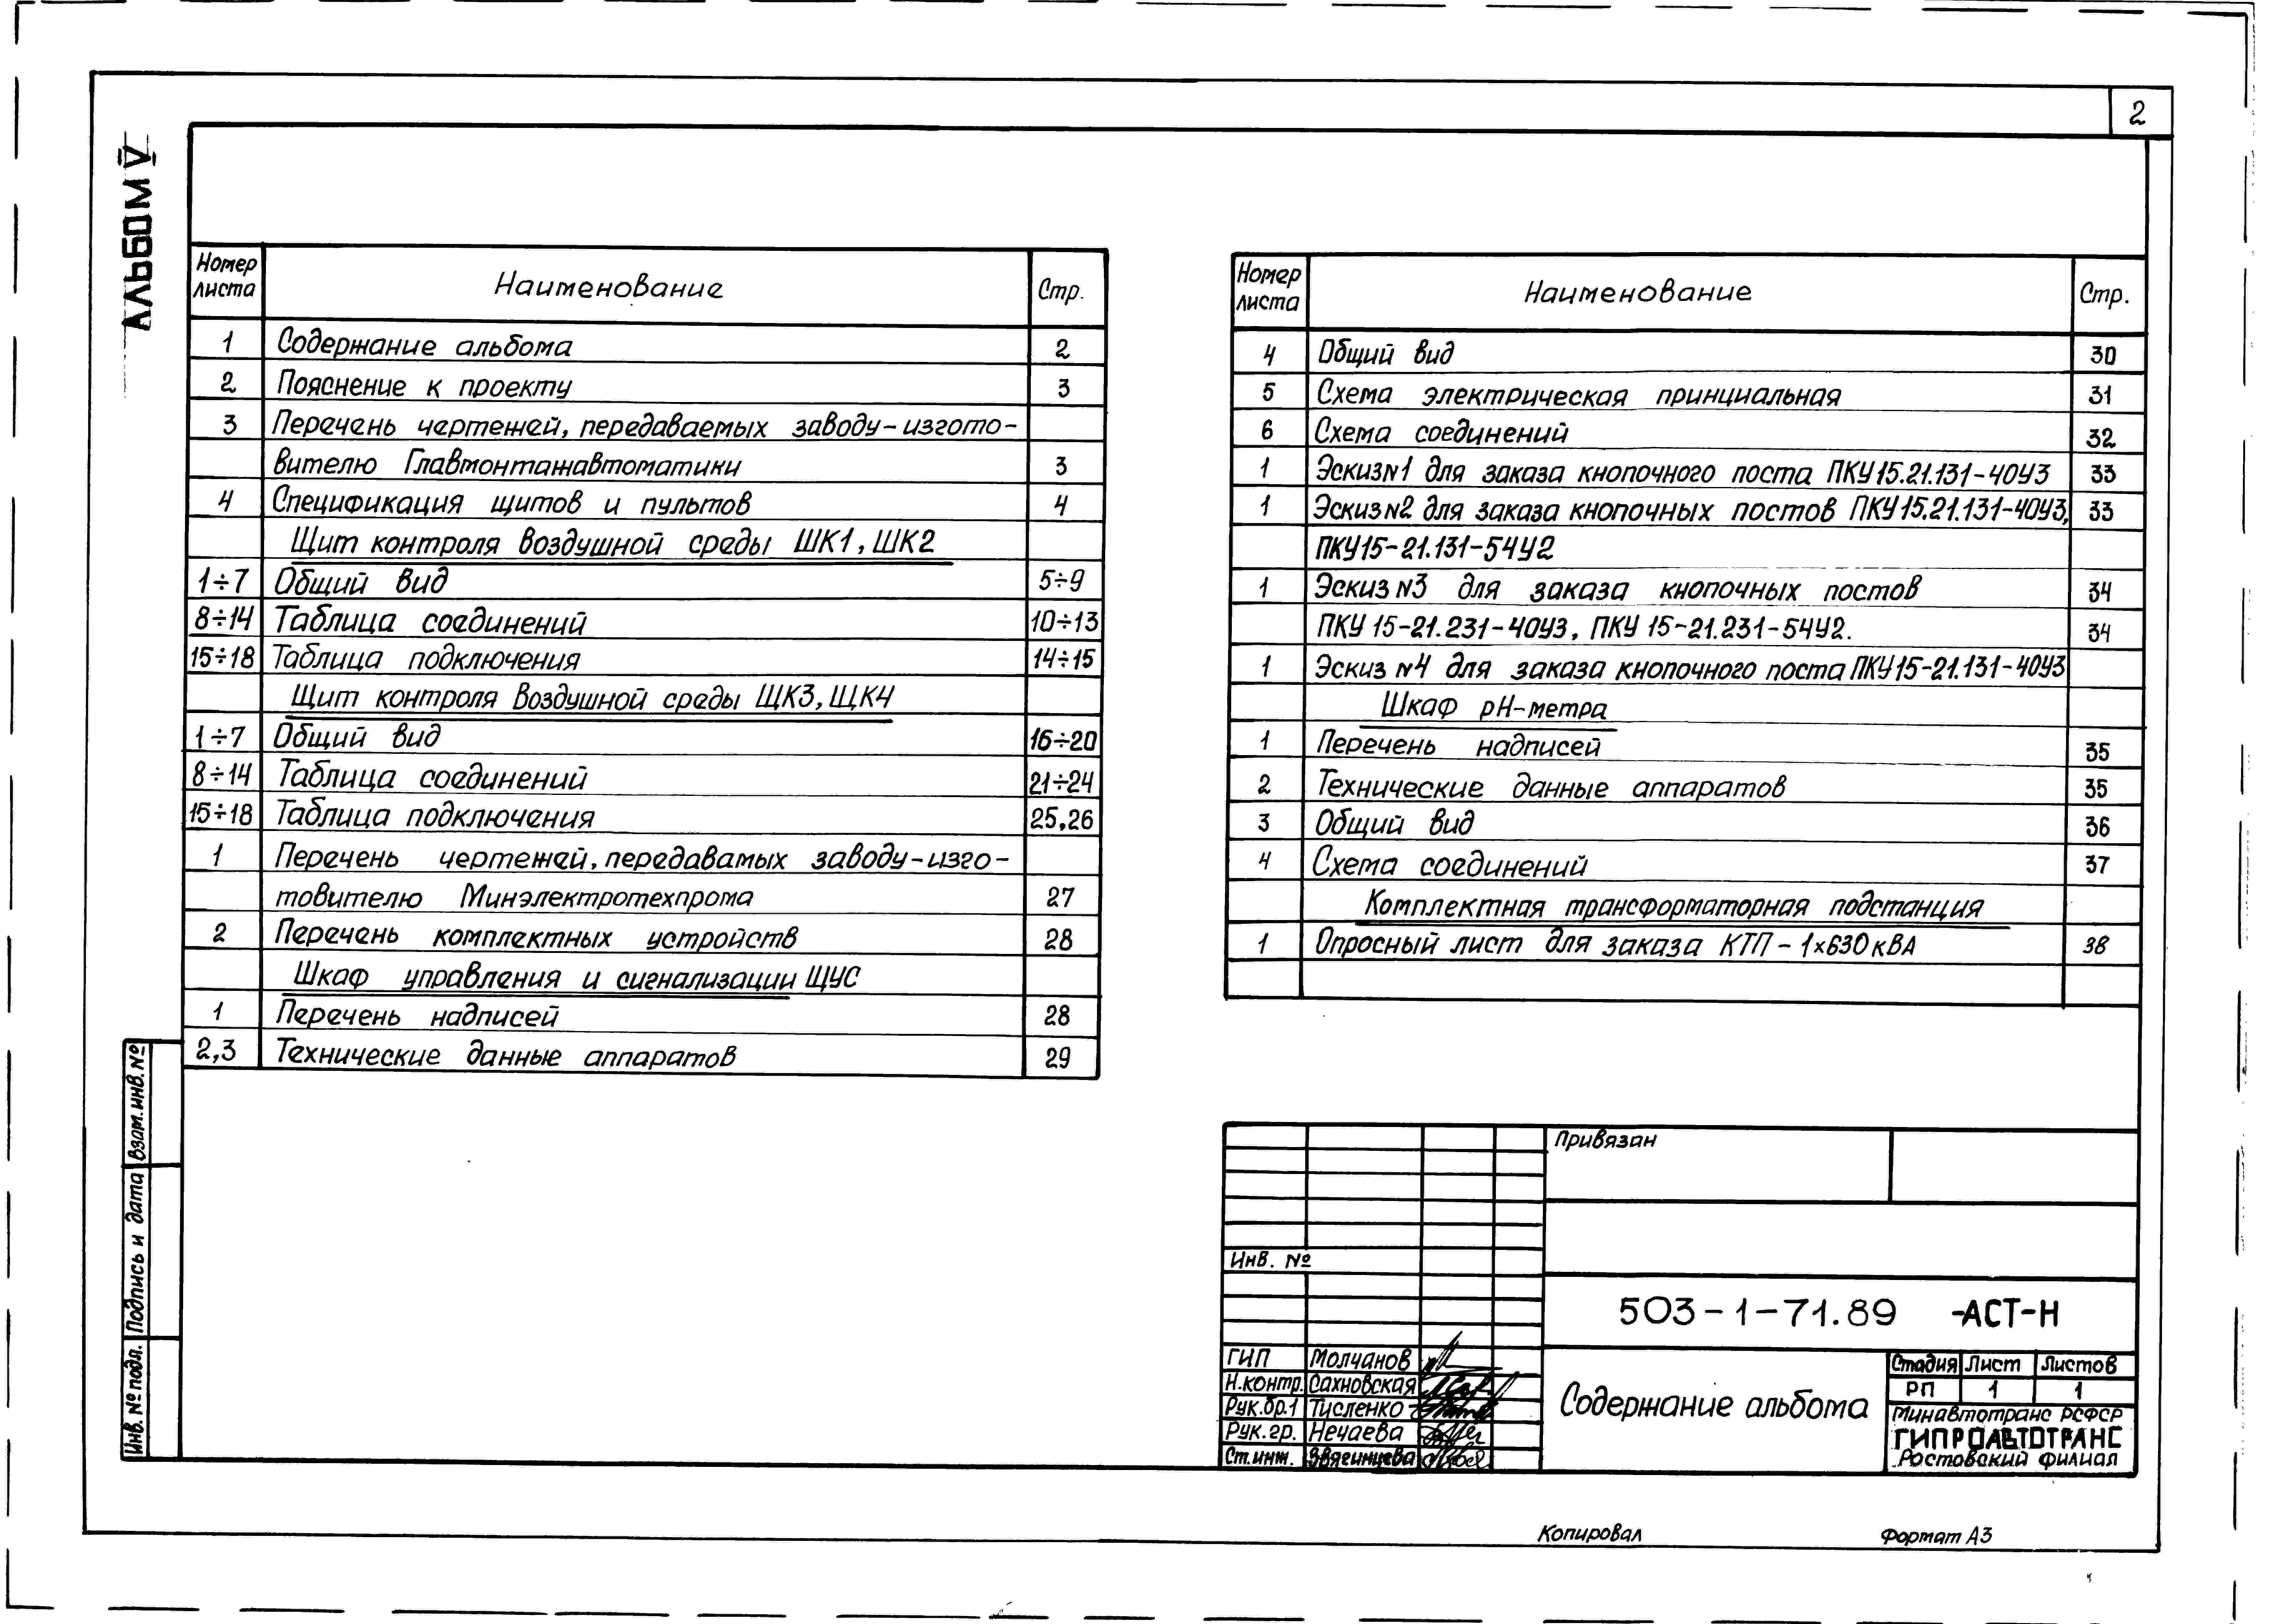 2
АЛЬБОМ V
Номер листа Наименование Стр.
1 Содержание альбома 2
2 Пояснение к проекту 3
3 Перечень чертежей, передаваемых заводу-изгото-
вителю Главмонтажавтоматики 3
4 Спецификация щитов и пультов 4
Щит контроля воздушной среды ШК1, ШК2
1÷7 Общий вид 5÷9
8÷14 Таблица соединений 10÷13
15÷18 Таблица подключения 14÷15
Щит контроля воздушной среды ЩК3, ЩК4
1÷7 Общий вид 16÷20
8÷14 Таблица соединений 21÷24
15÷18 Таблица подключения 25,26
1 Перечень чертежей, передавамых заводу-изго-
товителю Минэлектротехпрома 27
2 Перечень комплектных устройств 28
Шкаф управления и сигнализации ЩУС
1 Перечень надписей 28
2,3 Технические данные аппаратов 29
Номер листа Наименование Стр.
4 Общий вид 30
5 Схема электрическая принциальная 31
6 Схема соединений 32
1 Эскиз №1 для заказа кнопочного поста ПКУ15.21.131-40У3 33
1 Эскиз №2 для заказа кнопочных постов ПКУ15.21.131-40У3, 33
ПКУ15-21.131-54У2
1 Эскиз №3 для заказа кнопочных постов 34
ПКУ 15-21.231-40У3, ПКУ 15-21.231-54У2. 34
1 Эскиз №4 для заказа кнопочного поста ПКУ15-21.131-40У3
Шкаф рН-метра
1 Перечень надписей 35
2 Технические данные аппаратов 35
3 Общий вид 36
4 Схема соединений 37
Комплектная трансформаторная подстанция
1 Опросный лист для заказа КТП-1×630 кВА 38
Взам. инв. №
Подпись и дата
Инв. № подл.
Привязан
Инв. №
503-1-71.89 -АСТ-Н
ГИП Молчанов
Н.контр. Сахновская
Рук.бр.1 Тисленко
Рук.гр. Нечаева
Ст.инж. Звягинцева
Содержание альбома
Стадия Лист Листов
РП 1 1
Минавтотранс РСФСР
ГИПРОАВТОТРАНС
Ростовский филиал
Копировал Формат А3